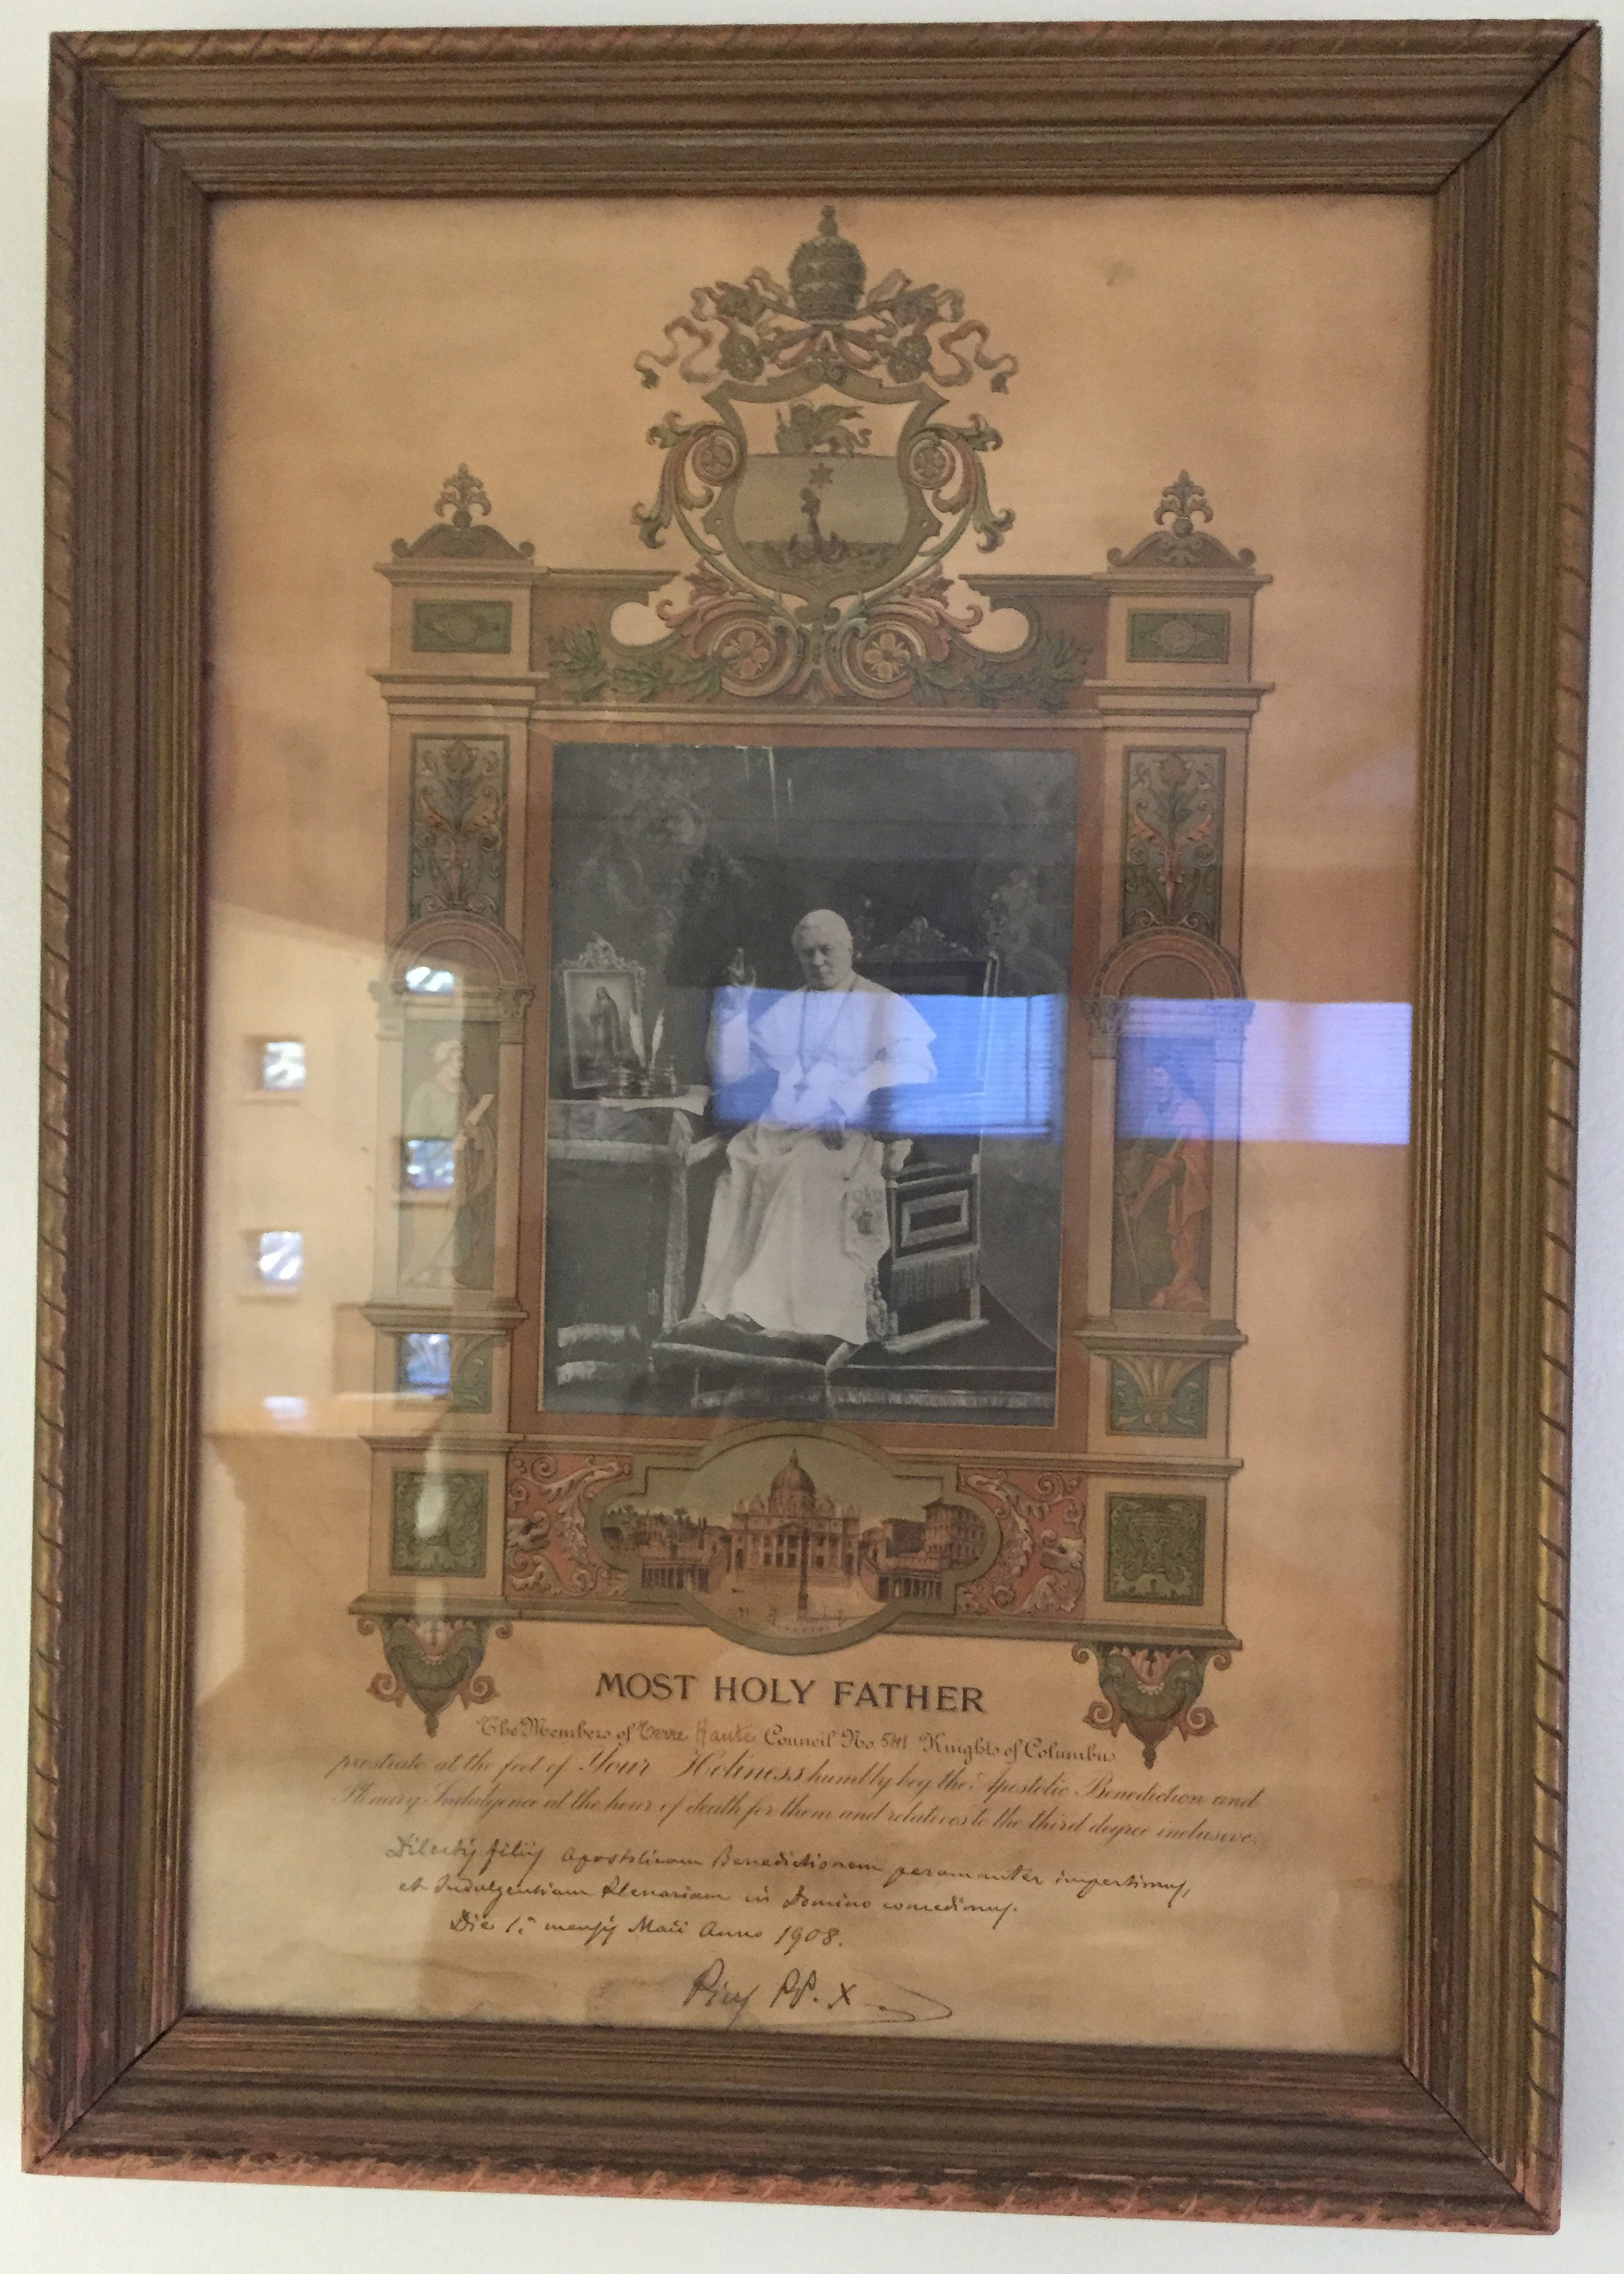 MOST HOLY FATHER
The Members of Terre Haute Council No. 541 Knights of Columbus
prostrate at the feet of Your Holiness humbly beg the Apostolic Benediction and
Plenary Indulgence at the hour of death for them and relatives to the third degree inclusive.
Dilectis filiis Apostolicam Benedictionem peramanter impertimus,
et Indulgentiam Plenariam in Domino concedimus.
Die 1.ª mensis Maii Anno 1908.
Pius PP. X